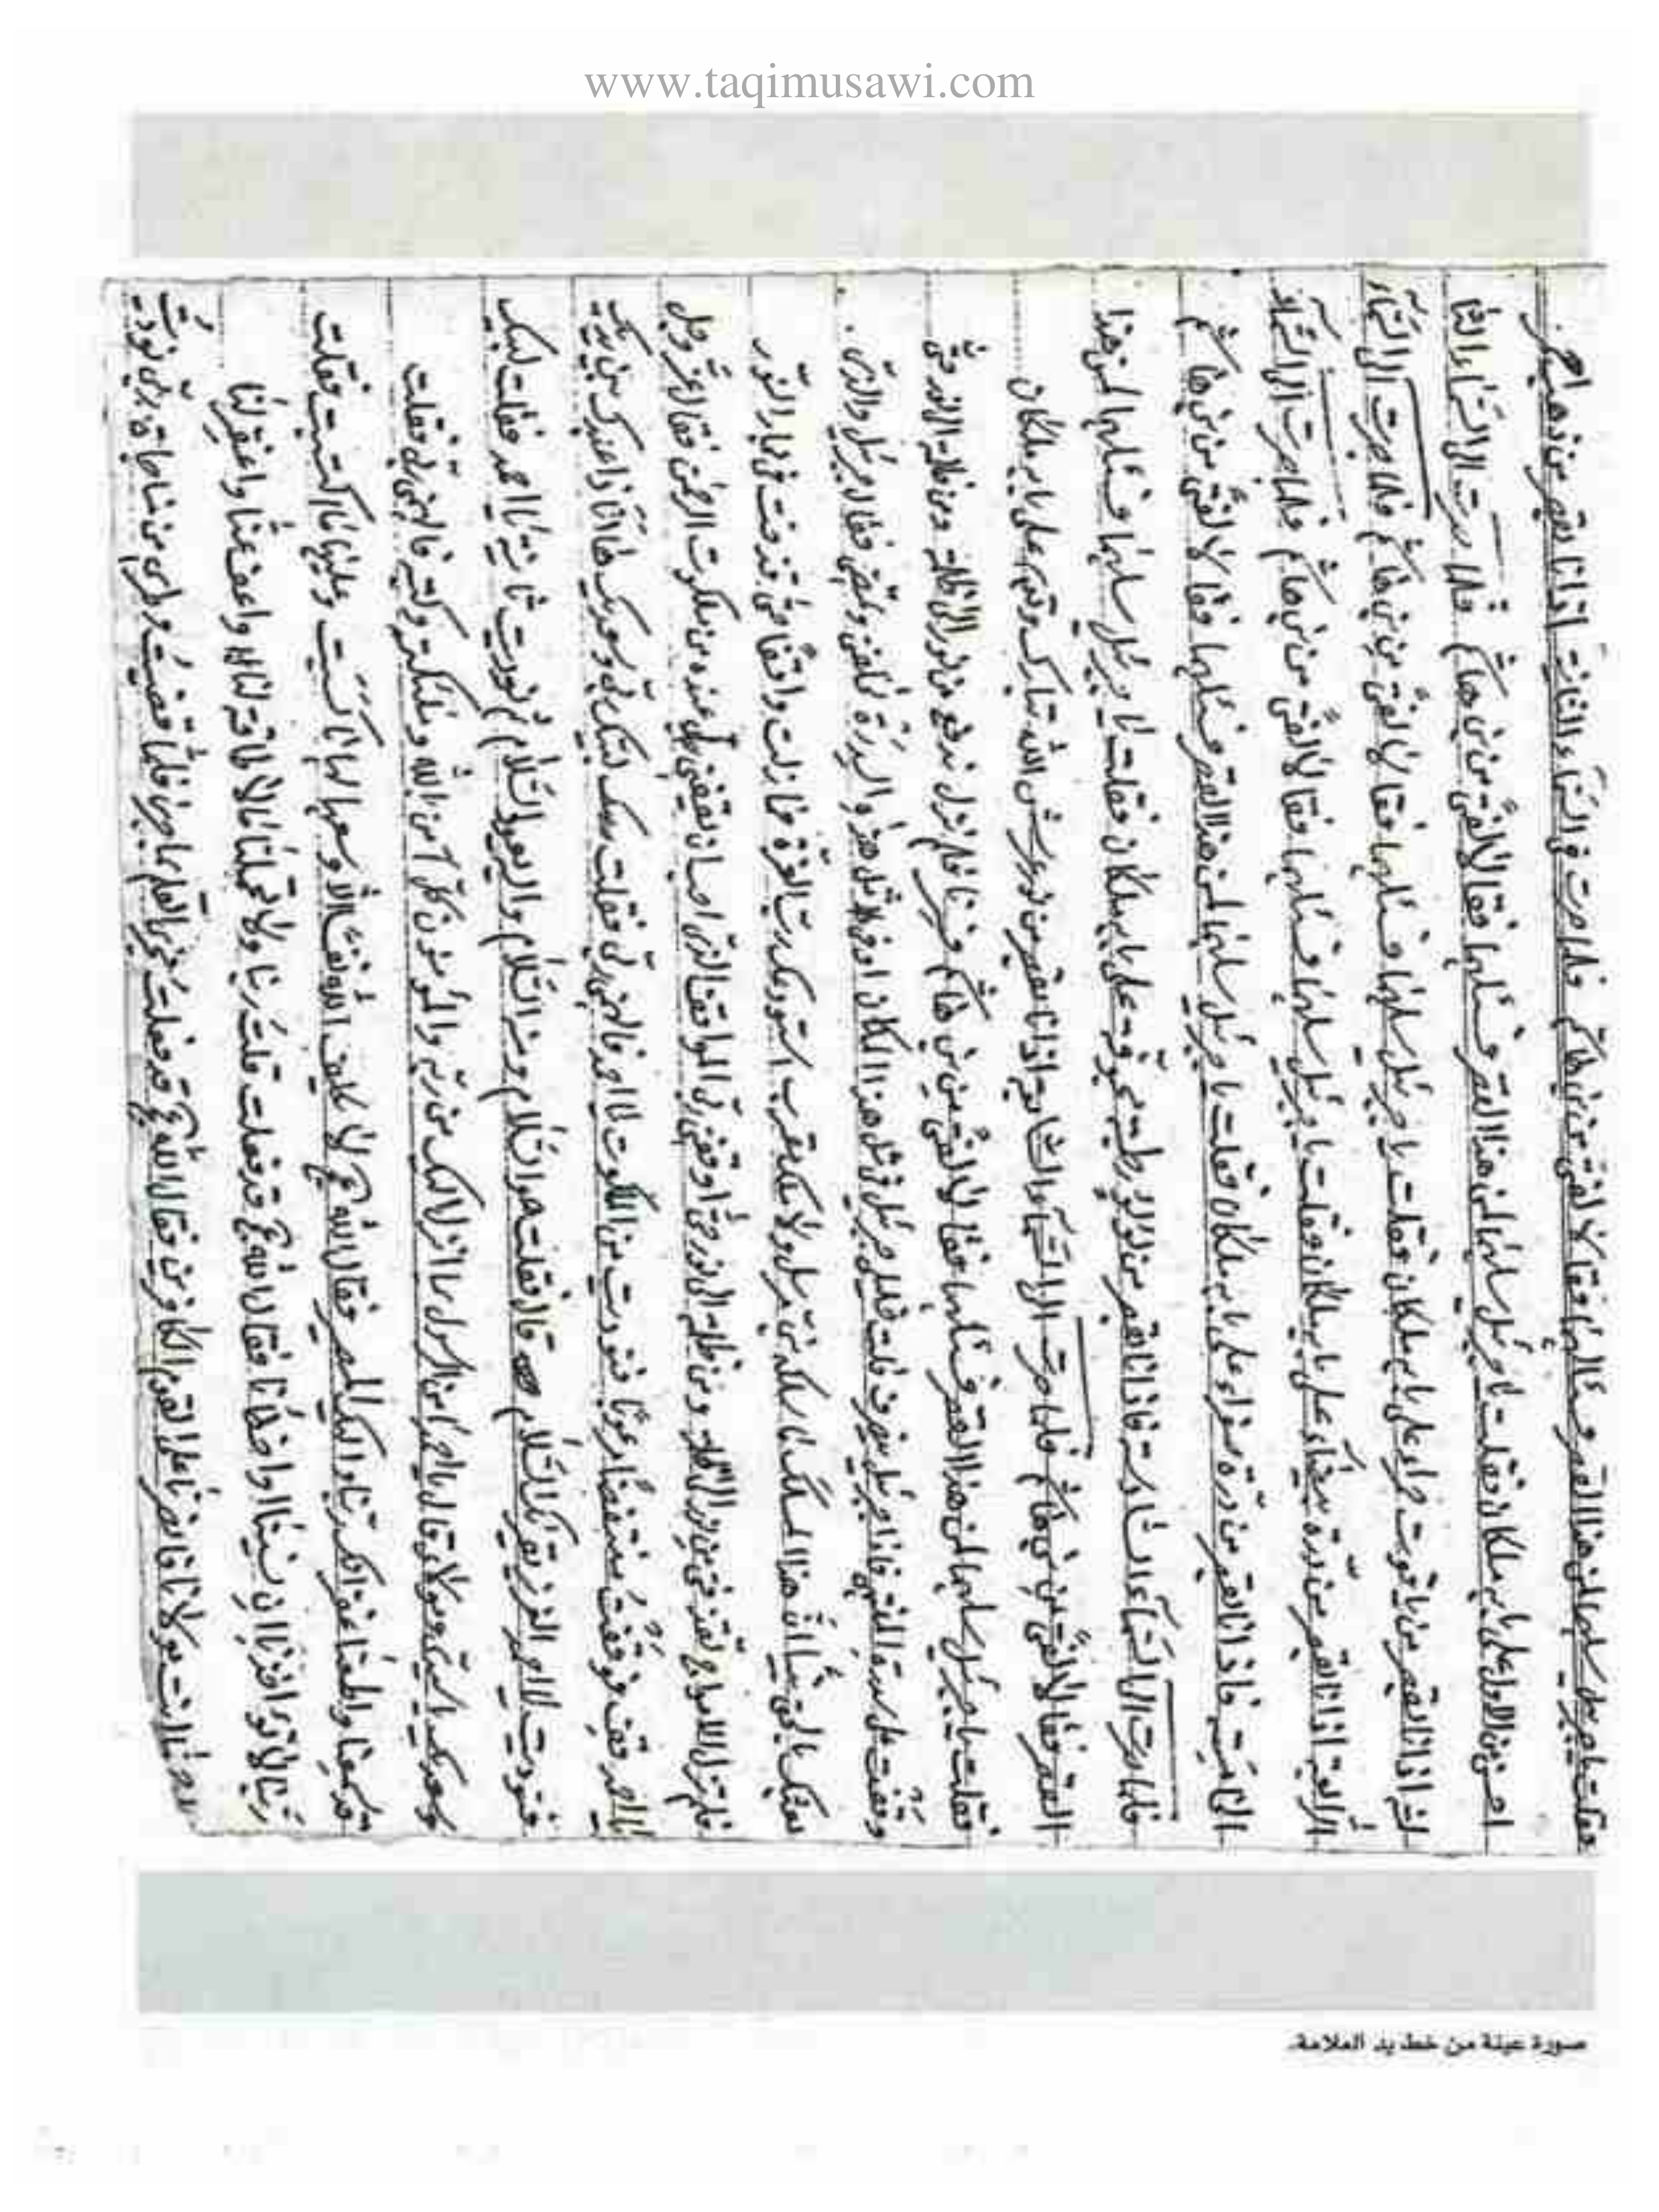 www.taqimusawi.com
فقلت يا جبرئيل سلهما لمن هذا القصر فسألهما فقالا لفتى من بني هاشم فلما صرت في السماء الثانية اذا انا بقصر من ذهب احمر
احسن من الاول على بابه ملكان فقلت يا جبرئيل سلهما لمن هذا القصر فسئلهما فقالا لفتى من بني هاشم فلما صرت الى السماء الثا
لثة اذا انا بقصر من ياقوت حمراء على بابه ملكان فقلت يا جبرئيل سلهما فسئلهما فقالا لفتى من بني هاشم فلما صرت الى السماء
الرابعة اذا انا بقصر من درة بيضاء على بابه ملكان فقلت يا جبرئيل سلهما فسئلهما فقالا لفتى من بني هاشم فلما صرت الى السماء
الخامسة فاذا انا بقصر من درة صفراء على بابه ملكان فقلت يا جبرئيل سلهما لمن هذا القصر فسئلهما فقالا لفتى من بني هاشم
فلما صرت الى السماء السادسة فاذا انا بقصر من لؤلؤ رطبة مجوفة على بابه ملكان فقلت يا جبرئيل سلهما فسئلهما لمن هذا
القصر فقالا لفتى من بني هاشم فلما صرت الى السماء السابعة اذا انا بقصر من نور عرش الله تبارك وتعالى على بابه ملكان
فقلت يا جبرئيل سلهما لمن هذا القصر فسئلهما فقالا لفتى من بني هاشم فسرنا فلم نزل ندفع من نور الى ظلمة ومن ظلمة الى نور حتى
وقفت على سدرة المنتهى فاذا جبرئيل ينصرف قلت خليلي جبرئيل في مثل هذا المكان او في مثل هذه السدرة تخلفني وتمضي فقال جبرئيل والذي
بعثك بالحق نبيا ان هذا المسلك ما سلكه نبي مرسل ولا ملك مقرب استودعك رب العزة فما زلت واقفا حتى قذفت في بحار النور
فلم تزل الامواج تقذفني من نور الى ظلمة ومن ظلمة الى نور حتى اوقفني ربي الموقف الذي احب ان يقفني عنده من ملكوت الرحمن فقال عز وجل
يا احمد قف فوقفت منتفضا مرعوبا فنوديت من الملكوت يا احمد فالهمني ربي فقلت لبيك ربي وسعديك ها انا ذا عبدك بين يديك
فنوديت يا احمد العزيز يقرئك السلام قال فقلت هو السلام ومنه السلام واليه يعود السلام ثم نوديت ثانية يا احمد فقلت لبيك
وسعديك سيدي ومولاي قال يا احمد آمن الرسول بما انزل اليه من ربه والمؤمنون كل آمن بالله وملئكته وكتبه فالهمني ربي فقلت
قد سمعنا واطعنا غفرانك ربنا واليك المصير فقال الله لا يكلف الله نفسا الا وسعها لها ما كسبت وعليها ما اكتسبت فقلت
ربنا لا تؤاخذنا ان نسينا او اخطأنا فقال الله قد فعلت قلت ربنا ولا تحملنا ما لا طاقة لنا به واعف عنا واغفر لنا
وارحمنا انت مولانا فانصرنا على القوم الكافرين فقال الله قد فعلت
صورة عينة من خط يد العلامة.